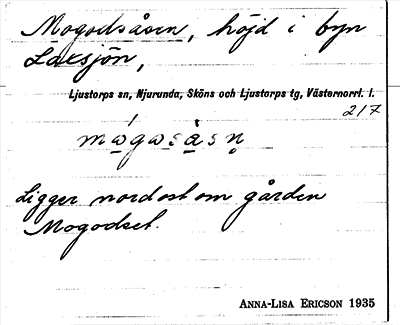 Mogodsåsen, höjd i byn
Laxsjön,
Ljustorps sn, Njurunda, Sköns och Ljustorps tg, Västernorrl. l.
217
mógasàsn̥
Ligger nordost om gården
Mogodset.
ANNA-LISA ERICSON 1935